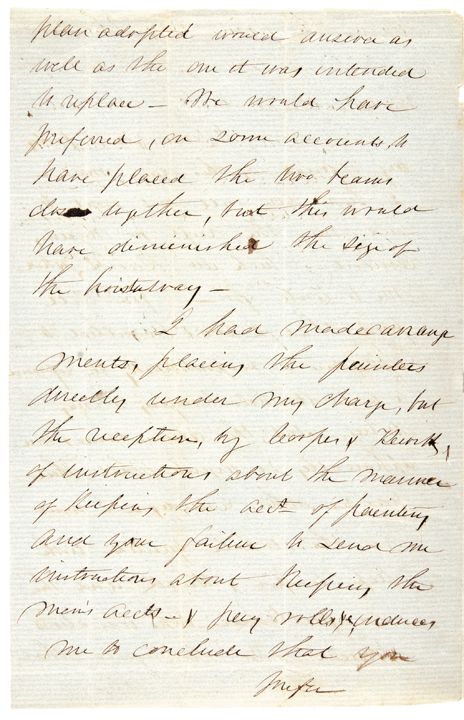 plan adopted would answer as
well as the one it was intended
to replace - We would have
preferred, on some accounts to
have placed the two beams
close together, but this would
have diminished the size of
the hoistway -
I had made arrange
ments, placing the painters
directly under my charge, but
the reception, by Cooper &
of instructions about the manner
of keeping the acct of painting
and your failure to send me
instructions about keeping the
men's accts - & pay rolls &c, induces
me to conclude that you
prefer